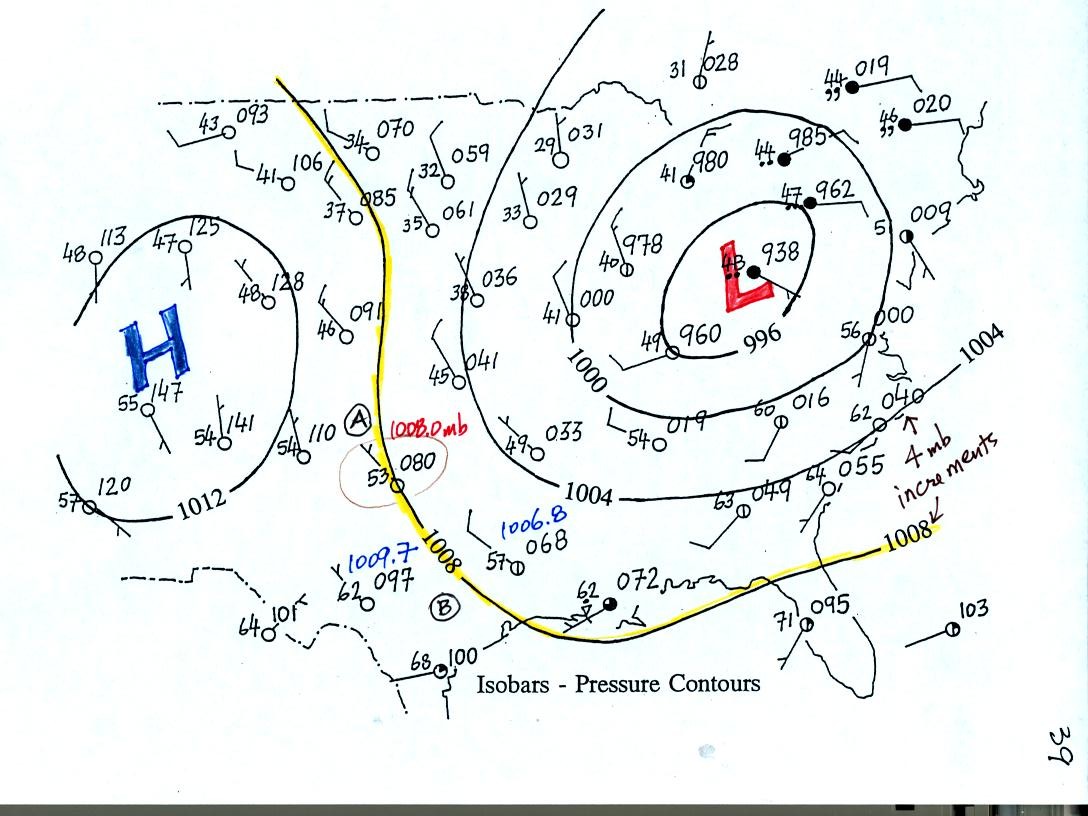 31 028
44 019
,,
46 020
,,
43 093
34 070
29 031
44 985
41 980
41 106
32 059
37 085
35 061
33 029
47 962
5 009
48 113
47 125
40 978
43 938
L
48 128
38 036
41 000
46 091
49 960
996
56 000
H
1000
1004
45 041
55 147
A
1008.0 mb
54 141
54 110
49 033
54 019
60 016
62 040
4 mb
increments
53 080
57 120
1012
1004
63 049
64 055
1006.8
1008
1008
1009.7
57 068
62 097
B
62 072
64 101
71 095
103
68 100
Isobars - Pressure Contours
39